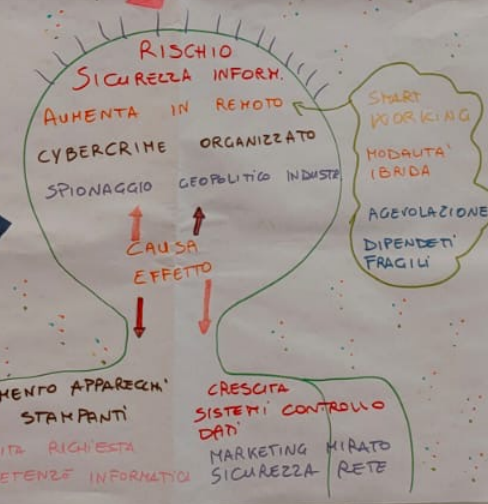 RISCHIO
SICUREZZA INFORM.
AUMENTA IN REMOTO
CYBERCRIME ORGANIZZATO
SPIONAGGIO GEOPOLITICO INDUST
SMART
WORKING
MODALITA'
IBRIDA
AGEVOLAZIONE
DIPENDETI
FRAGILI
CAUSA
EFFETTO
MENTO APPARECCHI
STAMPANTI
ITA RICHIESTA
ETENZE INFORMATICI
CRESCITA
SISTEMI CONTROLLO
DATI
MARKETING MIRATO
SICUREZZA RETE